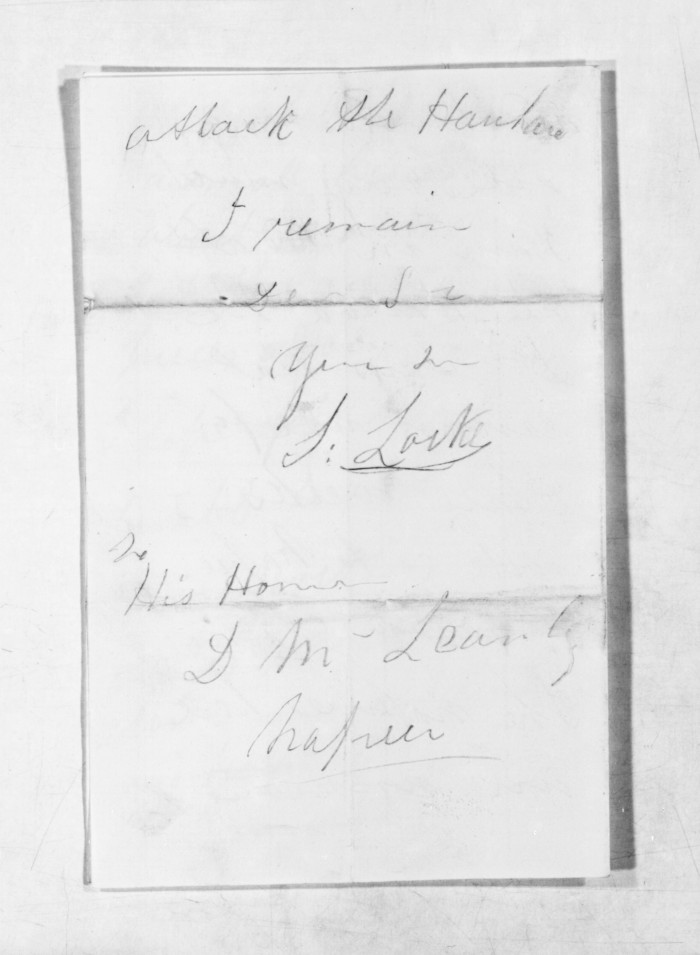 attack the Hauhau
I remain
Dear Sir
Yours
S: Locke
To
His Honor
D McLean Esq
Napier